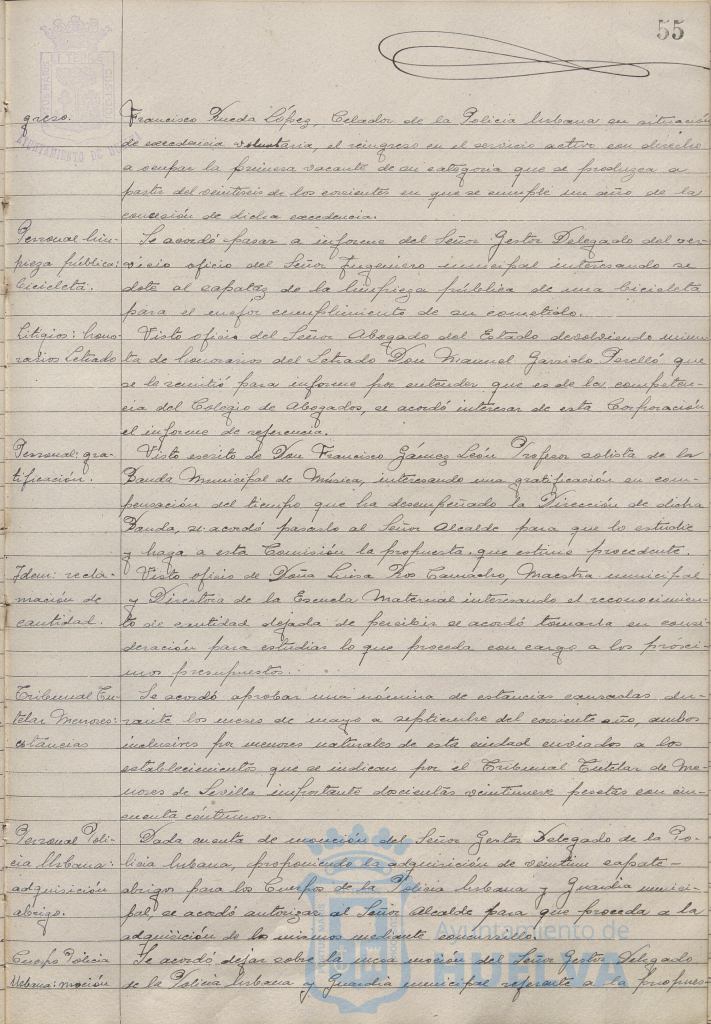 55
greso. Francisco Rueda López, Celador de la Policia Urbana en situación
de excedencia voluntaria, el reingreso en el servicio activo con derecho
a ocupar la primera vacante de su categoria que se produzca a
partir del veintiseis de los corrientes en que se cumple un año de la
concesión de dicha excedencia.
Personal limpieza pública: bicicleta.
Se acordó pasar a informe del Señor Gestor Delegado del ser-
vicio oficio del Señor Ingeniero municipal interesando se
dote al capataz de la limpieza pública de una bicicleta
para el mejor cumplimiento de su cometido.
Litigios: hono-
rarios Letrado
Visto oficio del Señor Abogado del Estado devolviendo minu-
ta de honorarios del Letrado Don Manuel Garrido Perelló que
se le remitió para informe por entender que es de la competen-
cia del Colegio de Abogados, se acordó interesar de esta Corporación
el informe de referencia.
Personal: gra-
tificación.
Visto escrito de Don Francisco Gámez León Profesor solista de la
Banda Municipal de Música, interesando una gratificación en com-
pensación del tiempo que ha desempeñado la Dirección de dicha
Banda, se acordó pasarlo al Señor Alcalde para que lo estudie
y haga a esta Comisión la propuesta que estime procedente.
Idem: recla-
mación de
cantidad.
Visto oficio de Doña Luisa Ros Camacho, Maestra municipal
y Directora de la Escuela Maternal interesando el reconocimien-
to de cantidad dejada de percibir se acordó tomarla en consi-
deración para estudiar lo que proceda con cargo a los próxi-
mos presupuestos.
Tribunal Tu-
telar Menores:
estancias
Se acordó aprobar una nómina de estancias causadas du-
rante los meses de mayo a septiembre del corriente año, ambos
inclusives por menores naturales de esta ciudad enviados a los
establecimientos que se indican por el Tribunal Tutelar de Me-
nores de Sevilla importante doscientas veintinueve pesetas con cin-
cuenta céntimos.
Personal Poli-
cia Urbana:
adquisición
abrigo.
Dada cuenta de moción del Señor Gestor Delegado de la Po-
licia Urbana, proponiendo la adquisición de veintiun capote-
abrigos para los Cuerpos de la Policia Urbana y Guardia munici-
pal, se acordó autorizar al Señor Alcalde para que proceda a la
adquisición de los mismos mediante concursillo.
Cuerpo Policia
Urbana: moción
Se acordó dejar sobre la mesa moción del Señor Gestor Delegado
de la Policia Urbana y Guardia municipal referente a la propues-
Ayuntamiento de
HUELVA